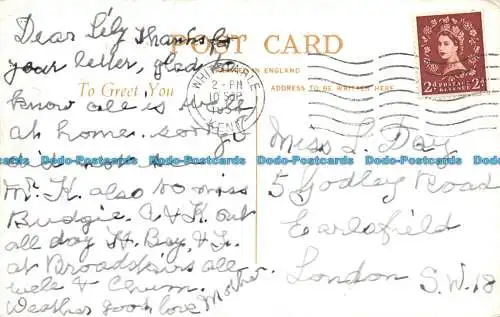 Dear Lily Thanks for
your letter, glad to
know all is well
at home. sorry
Mr. K. also to miss
Budgie. A & K out
all day H. Bay, &
at Broadstairs all
well & Chum.
Weather good love Mother.
POST CARD
To Greet You
IN ENGLAND
ADDRESS TO BE WRITTEN HERE
WHITSTABLE
2 - PM
10 SEP
KENT
POSTAGE REVENUE
2D 2D
Miss L. Day
5 Godley Road
Earlsfield
London S.W.18
Dodo-Postcards Dodo-Postcards Dodo-Postcards Dodo-Postcards Dodo-Postcards